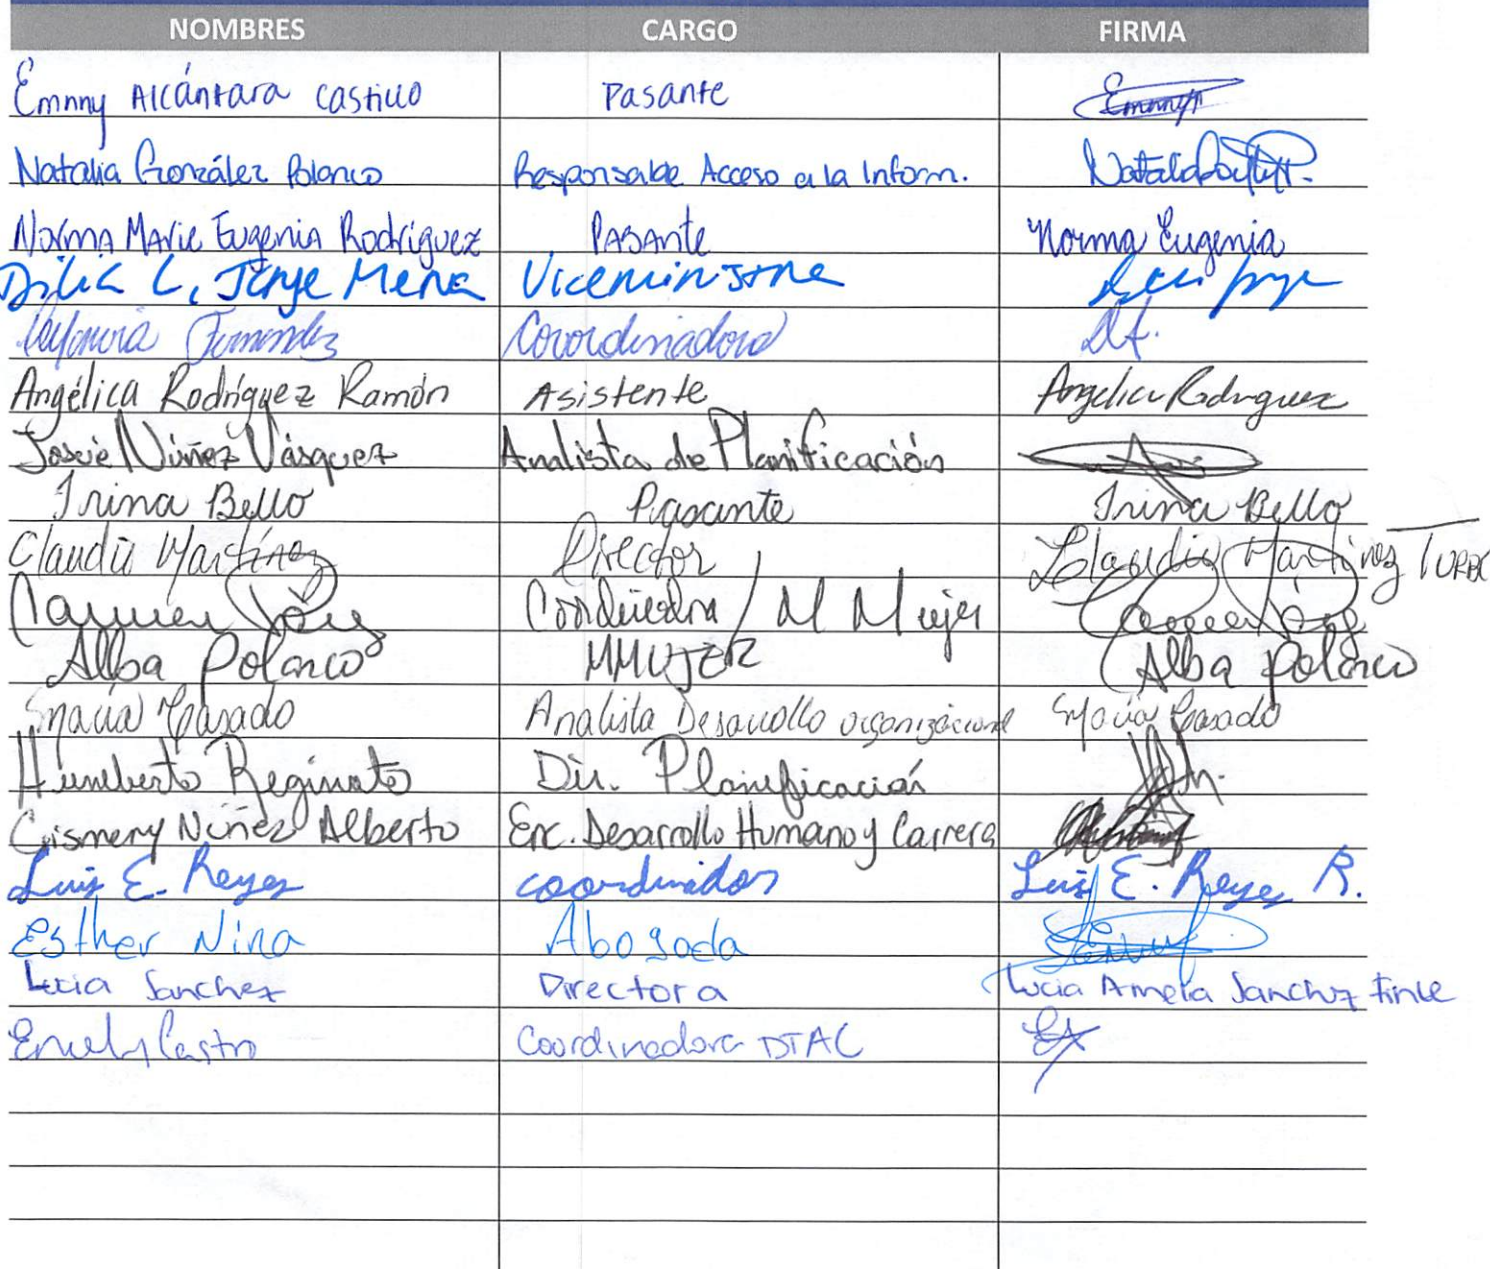 NOMBRES CARGO FIRMA
Emnny Alcántara Castillo Pasante Emnny
Natalia González Polanco Responsable Acceso a la Inform. Natalia
Norma Marie Eugenia Rodríguez Pasante Norma Eugenia
Dilia L. Jorge Mera Viceministra
Fernández Coordinadora
Angélica Rodríguez Ramón Asistente Angelica Rodriguez
Josué Núñez Vásquez Analista de Planificación
Irina Bello Pasante Irina Bello
Claudio Martínez Director Claudio Martinez
Carmen Coordinadora / M Mujer Carmen
Alba Polanco MMUJER Alba Polanco
Casado Analista Desarrollo organizacional Casado
Humberto Reginato Dir. Planificación
Crismery Núñez Alberto Enc. Desarrollo Humano y Carrera
Luis E. Reyes coordinador Luis E. Reyes R.
Esther Nina Abogada
Lucia Sanchez Directora Lucia Amelia Sanchez
Castro Coordinadora DTAC